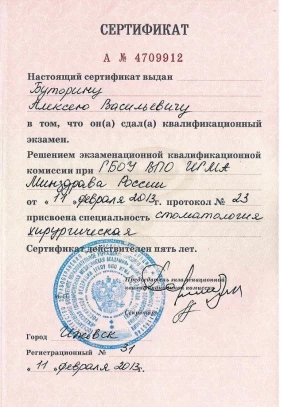 СЕРТИФИКАТ
А № 4709912
Настоящий сертификат выдан
Буторину
Алексею Васильевичу
в том, что он(а) сдал(а) квалификационный
экзамен.
Решением экзаменационной квалификационной
комиссии при ГБОУ ВПО ИГМА
Минздрава России
от "11" февраля 2013г. протокол № 23
присвоена специальность стоматология
хирургическая
Сертификат действителен пять лет.
Председатель экзаменационной
квалификационной комиссии
Секретарь
Город Ижевск
Регистрационный № 31
"11" февраля 2013г.